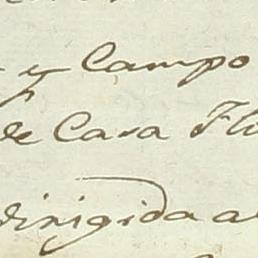 y Campo
de Casa
dirigida a